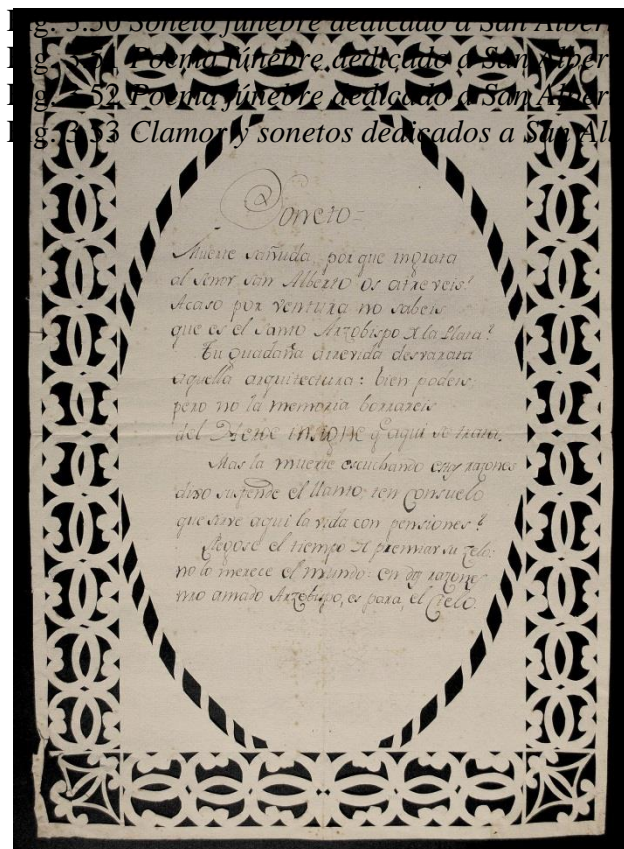 Fig. 3.50 Soneto fúnebre dedicado a San Alber
Fig. 3.51 Poema fúnebre dedicado a San Alber
Fig. 3.52 Poema fúnebre dedicado a San Alber
Fig. 3.53 Clamor y sonetos dedicados a San Al
Soneto=
Muerte sañuda, por que ingrata
al Senor San Alberto os atreveis?
Acaso por ventura no sabeis
que es el Santo Arzobispo d la Plata?
Tu guadaña atrevida desvarata
aquella arquitectura: bien podeis,
pero no la memoria borrareis
del Heroe INSIGNE q aqui se trata.
Mas la muerte escuchando estas razones
dixo suspende el llanto: ten consuelo
que sirve aqui la vida con pensiones?
Llegose el tiempo d premiar su zelo:
no lo merece el mundo: en dos razones
tuo amado Arzobispo, es para, el Cielo.